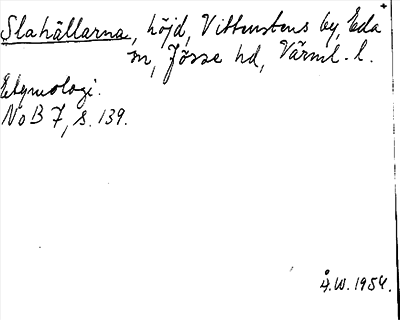 Slahällarna, höjd, Vittenstens by, Eda
sn, Jösse hd, Värml. l.
Etymologi.
NoB 7, s. 139.
Å.W. 1954.